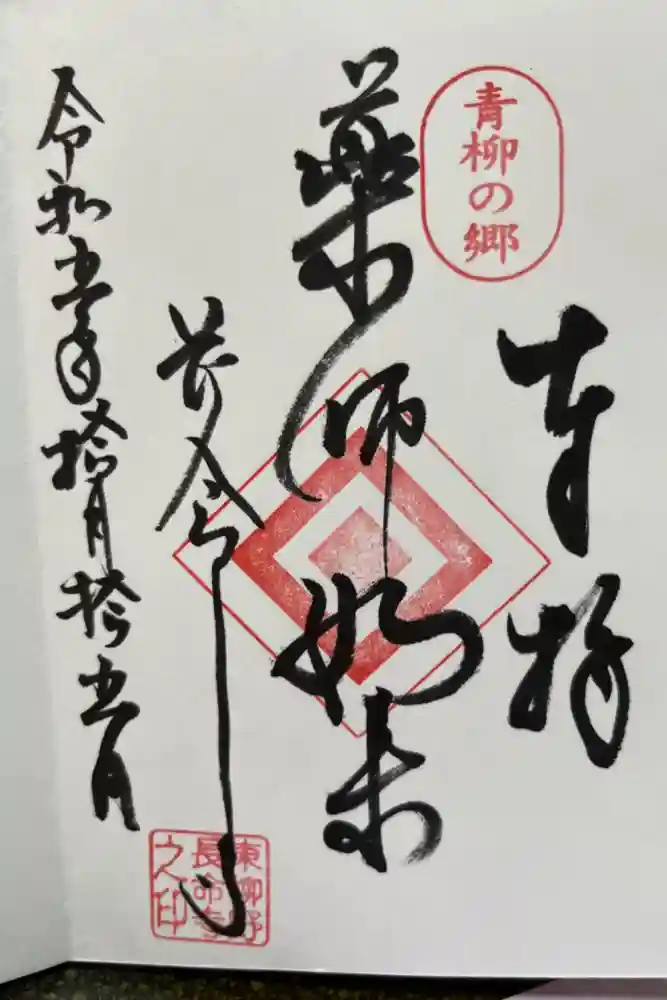 青柳の郷
奉拝
藥師如来
長命寺
令和五年拾月拾五日
東柳野
長命寺
之印